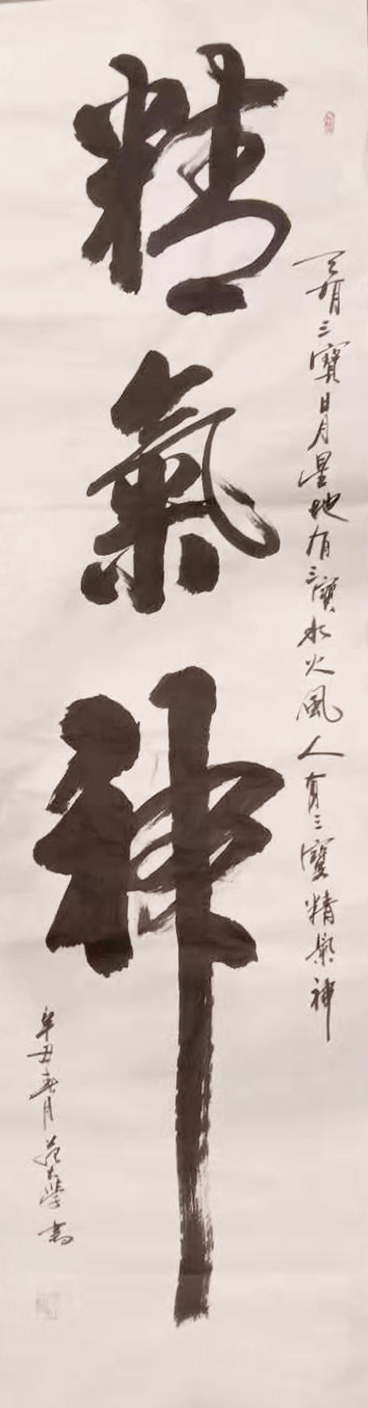 天有三寶日月星地有三寶水火風人有三寶精氣神
精氣神
辛丑春月范大學書